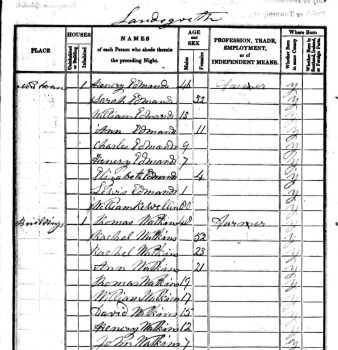 Landegveth
PLACE
HOUSES
Uninhabited or Building
Inhabited
NAMES of each Person who abode therein the preceding Night.
AGE and SEX
Males
Females
PROFESSION, TRADE, EMPLOYMENT, or of INDEPENDENT MEANS.
Where Born
Whether Born in same County
1 Henery Edmunds 44 Farmer y
Sarah Edmunds 32 y
William Edmunds 13 y
Ann Edmunds 11 y
Charles Edmunds 9 y
Henery Edmunds 7 y
Elizabeth Edmunds 4 y
Lewis Edmunds 1 y
William 80 y
Buildings 1 Thomas Watkins 48 Farmer y
Rachel Watkins 52 y
Rachel Watkins 23 y
Ann Watkins 21 y
Thomas Watkins 19 y
William Watkins 17 y
David Watkins 15 y
Henery Watkins 12 y
John Watkins 7 y